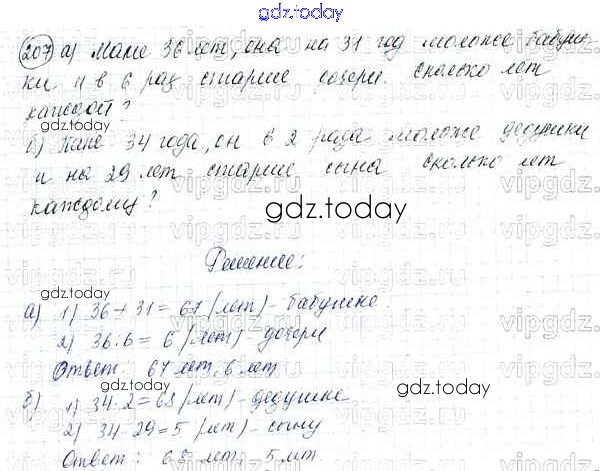 gdz.today
207) а) Маме 36 лет, она на 31 год моложе бабуш-
ки и в 6 раз старше дочери. Сколько лет
каждой?
gdz.today
б) Папе 34 года, он в 2 раза моложе дедушки
и на 29 лет старше сына Сколько лет
каждому?
gdz.today
Решение:
gdz.today
а) 1) 36 + 31 = 67 (лет) - бабушке.
2) 36:6 = 6 (лет) - дочери
Ответ: 67 лет, 6 лет.
gdz.today
б) 1) 34·2=68 (лет) - дедушке
2) 34-29=5 (лет) - сыну
Ответ: 68 лет, 5 лет.
gdz.today